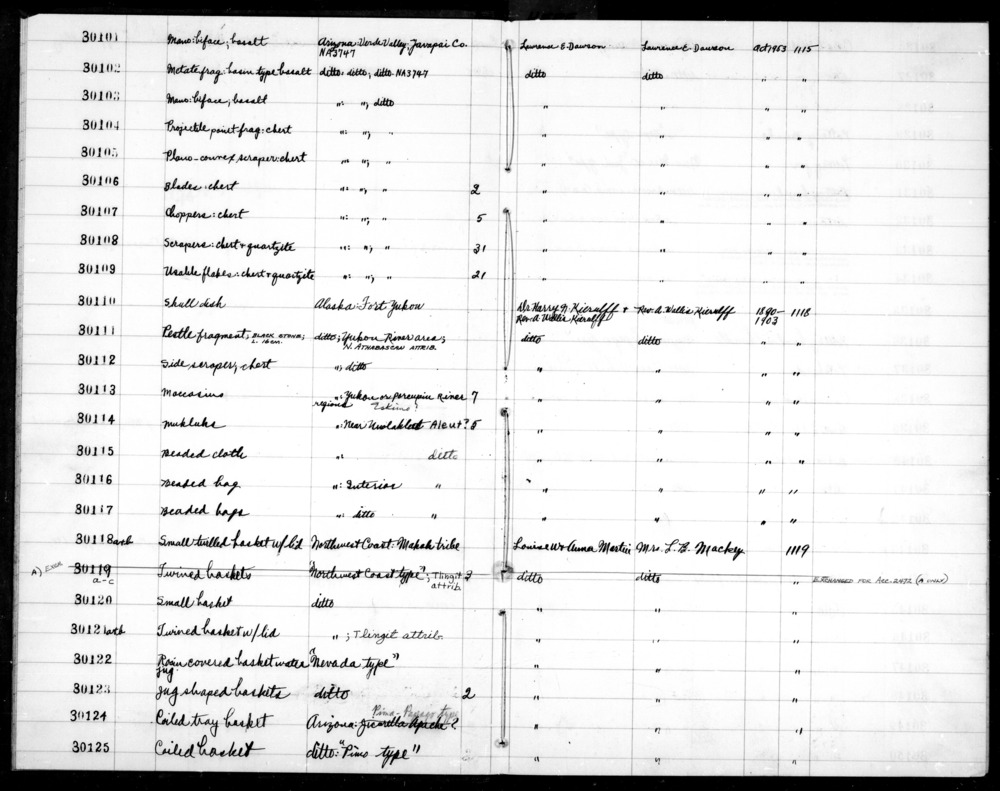 30101 Mano: biface; basalt Arizona: Verde Valley: Yavapai Co. NA3747 Lawrence E. Dawson Lawrence E. Dawson Oct 1953 1115
30102 Metate frag: basin type basalt ditto: ditto; ditto NA3747 ditto ditto " "
30103 Mano: biface; basalt ": "; ditto " " " "
30104 Projectile point frag: chert ": "; " " " " "
30105 Plano-convex scraper: chert ": "; " " " " "
30106 Blades: chert ": "; " 2 " " " "
30107 Choppers: chert ": "; " 5 " " " "
30108 Scrapers: chert + quartzite ": "; " 31 " " " "
30109 Usable flakes: chert + quartzite ": "; " 21 " " " "
30110 Skull dish Alaska: Fort Yukon Dr. Harry N. Kierulff + Rev. A. Wallis Kierulff Rev. A. Wallis Kierulff 1890-1903 1118
30111 Pestle fragment; BLACK STONE; L. 16 cm. ditto; Yukon River area; N. ATHABASCAN ATTRIB. ditto ditto " "
30112 Side scraper; chert "; ditto " " " "
30113 Moccasins ": Yukon or Porcupine River regions Eskimo? 7 " " " "
30114 Mukluks ": Near Unalakleet Aleut? 5 " " " "
30115 Beaded cloth ": ditto " " " "
30116 Beaded bag ": Interior " " " " "
30117 Beaded bags ": ditto " " " " "
30118 a+b Small twilled basket w/lid Northwest Coast: Makah tribe Louise Wo Anna Martin Mrs. L. B. Mackey 1119
A) EXCH 30119 a-c Twined baskets "Northwest Coast type"; Tlingit attrib. 3 ditto ditto " EXCHANGED FOR ACC-2472 (A ONLY)
30120 Small basket ditto " " "
30121 a+b Twined basket w/lid "; Tlingit attrib. " " "
30122 Rosin covered basket water jug "Nevada type" " " "
30123 Jug shaped baskets ditto 2 " " "
Pima-Papago type
30124 Coiled tray basket Arizona: Jicarilla Apache? " " "
30125 Coiled basket ditto: "Pimo type" " " "